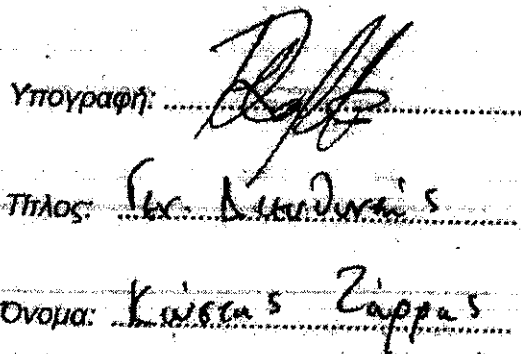 Υπογραφή:
Τίτλος: Γεν. Διευθυντής
Όνομα: Κώστας Ζάρρας